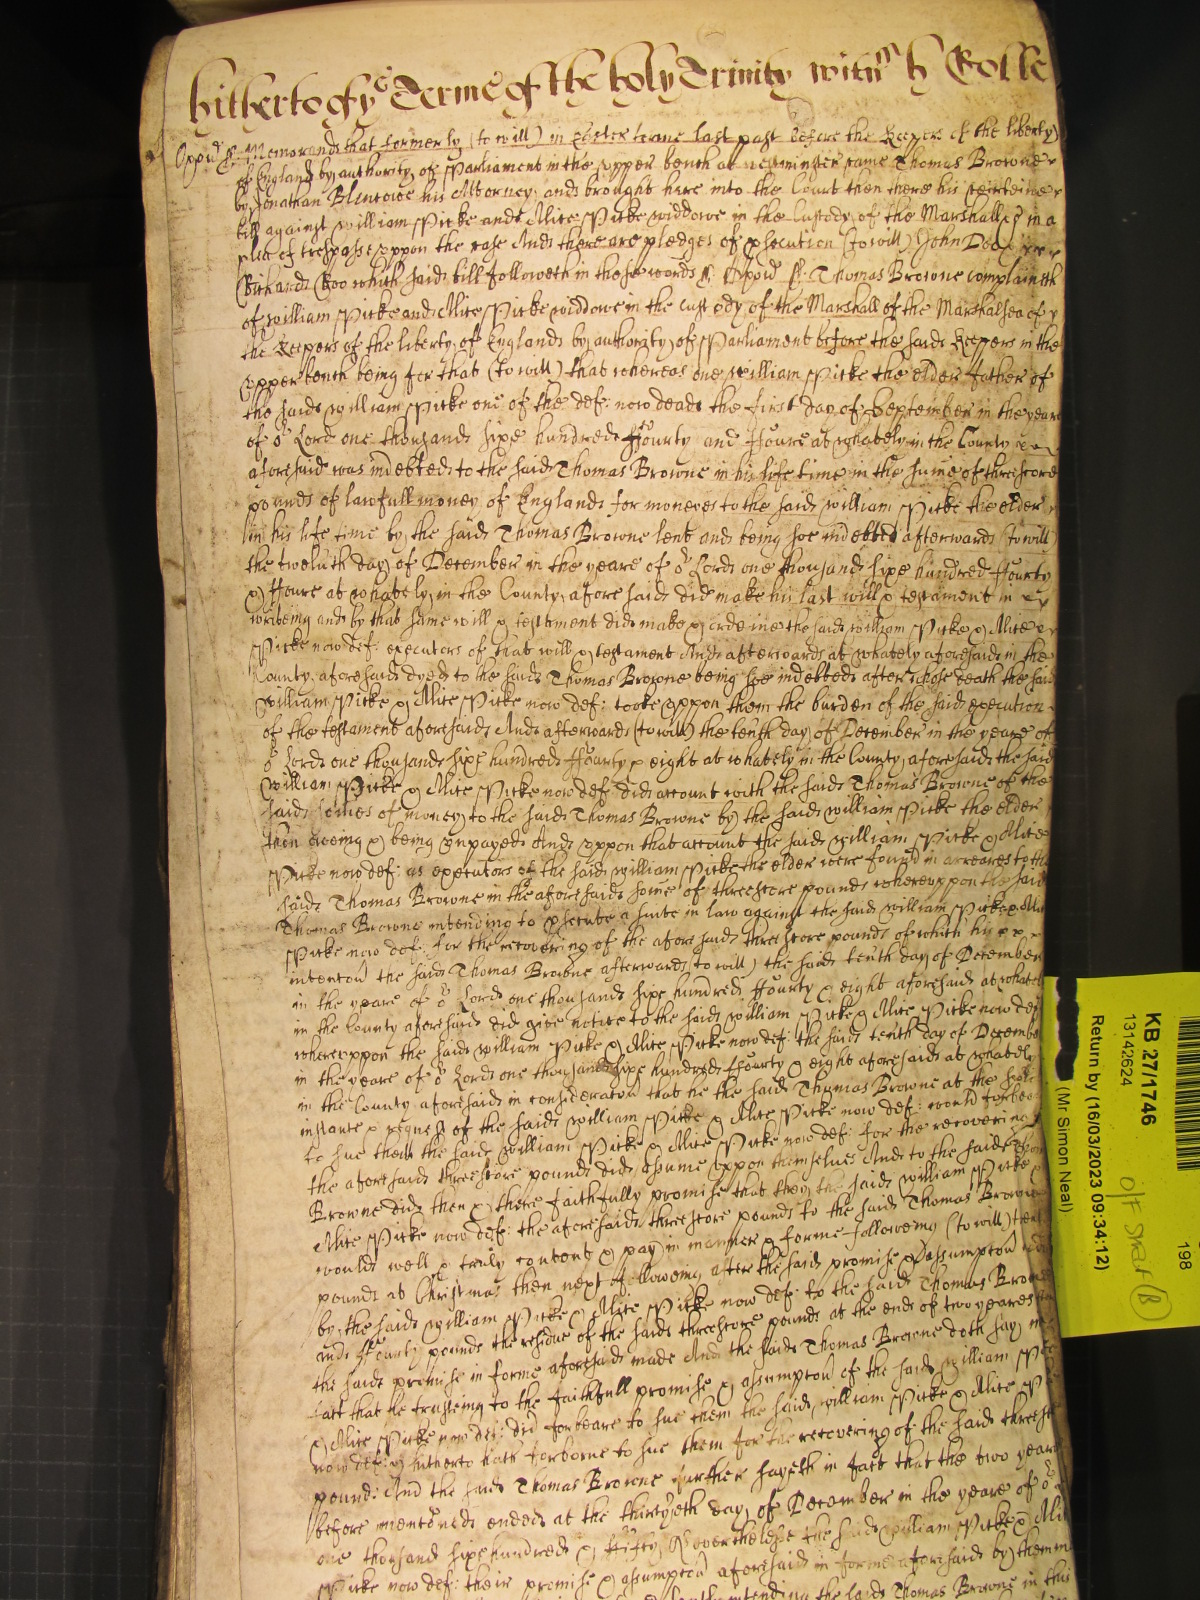 hitherto of ye Terme of the holy Trinity witn h Rolle
Memorand that formerly (to will) in Easter terme last past before the Keepers of the liberty
of England by authority of Parliament in the upper bench at westminster came Thomas Browne
by Jonathan Blincowe his Attorney and brought here into the Court then there his certeine
bill against William Picke and Alice Picke widdowe in the Custody of the Marshall &c in a
plea of trespasse uppon the case And there are pledges of psecution (to will) John Doe
Richard Roo which said bill followeth in these words ss Thomas Browne complaineth
of William Picke and Alice Picke widdowe in the custody of the Marshall of the Marshalsea of
the Keepers of the liberty of England by authority of Parliament before the said Keepers in the
upper bench being for that (to will) that whereas one William Picke the elder father of
the said William Picke one of the def: now dead the first day of September in the yeare
of or Lord one thousand sixe hundred ffourty and ffoure at whately in the County
aforesaid was indebted to the said Thomas Browne in his life time in the sume of threescore
pounds of lawfull money of England for moneyes to the said William Picke the elder
in his life time by the said Thomas Browne lent and being soe indebted afterwards (to will)
the twelueth day of December in the yeare of or Lord one thousand sixe hundred ffourty
& ffoure at whately in the County aforesaid did make his last will & testament in
writeing and by that same will & testament did make & ordeine the said William Picke & Alice
Picke now def: executors of that will & testament And afterwards at whately aforesaid in the
County aforesaid dyed to the said Thomas Browne being soe indebted after whose death the said
William Picke & Alice Picke now def: tooke uppon them the burden of the said execution
of the testament aforesaid And afterwards (to will) the tenth day of December in the yeare of
or Lord one thousand sixe hundred ffourty & eight at whately in the County aforesaid the said
William Picke & Alice Picke now def: did account with the said Thomas Browne of the
said somes of money to the said Thomas Browne by the said William Picke the elder
then oweing & being unpayed And uppon that account the said William Picke & Alice
Picke now def: as executors of the said William Picke the elder were found in arreares to the
said Thomas Browne in the aforesaid some of threescore pounds whereuppon the said
Thomas Browne intending to psecute a suite in law against the said William Picke & Alice
Picke now def: for the recovering of the aforesaid threescore pounds of which his
intention the said Thomas Browne afterwards (to will) the said tenth day of December
in the yeare of or Lord one thousand sixe hundred ffourty & eight aforesaid at whately
in the County aforesaid did give notice to the said William Picke & Alice Picke now def
whereuppon the said William Picke & Alice Picke now def: the said tenth day of December
in the yeare of or Lord one thousand sixe hundred ffourty & eight aforesaid at whately
in the County aforesaid in consideration that he the said Thomas Browne at the
instance & request of the said William Picke & Alice Picke now def: would forbeare
to sue them the said William Picke & Alice Picke now def: for the recovering
the aforesaid threescore pounds did assume uppon themselves And to the said
Browne did then & there faithfully promise that they the said William Picke &
Alice Picke now def: the aforesaid threescore pounds to the said Thomas Browne
would well & truly content & pay in manner & forme followeing (to will)
pounds at Christmas then next followeing after the said promise & assumption
by the said William Picke & Alice Picke now def: to the said Thomas Browne
and pounds the residue of the said threescore pounds at the end of two yeares
the said promise in forme aforesaid made And the said Thomas Browne doth say in
fact that he trusteing to the faithfull promise & assumption of the said William
& Alice Picke now def: did forbeare to sue them the said William Picke & Alice
now def: & hitherto hath forborne to sue them for the recovering of the said
pound: And the said Thomas Browne further sayeth in fact that the two yeares
before mentioned ended at the thirtyeth day of December in the yeare of or
one thousand sixe hundred & fifty Neverthelesse the said William Picke & Alice
Picke now def: their promise & assumption aforesaid in forme aforesaid by them
intending the said Thomas Browne in this
KB 27/1746
13142624
Return by (16/03/2023 09:34:12)
(Mr Simon Neal)
198